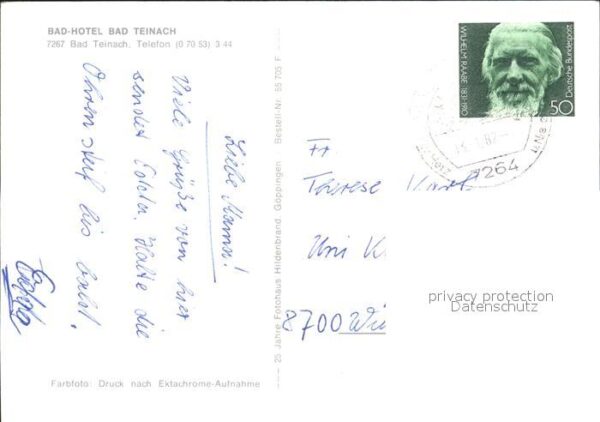 BAD-HOTEL BAD TEINACH
7267 Bad Teinach, Telefon (0 70 53) 3 44
Liebe Mama!
Viele Grüße von hier
sendet Edda. Halte die
Ohren steif bis bald!
Edda
Farbfoto: Druck nach Ektachrome-Aufnahme
25 Jahre Fotohaus Hildenbrand Göppingen Bestell-Nr. 55 705 F
WILHELM RAABE 1831-1910
Deutsche Bundespost
50
7264
Fr
Therese
Uni K
8700 Wü
privacy protection
Datenschutz